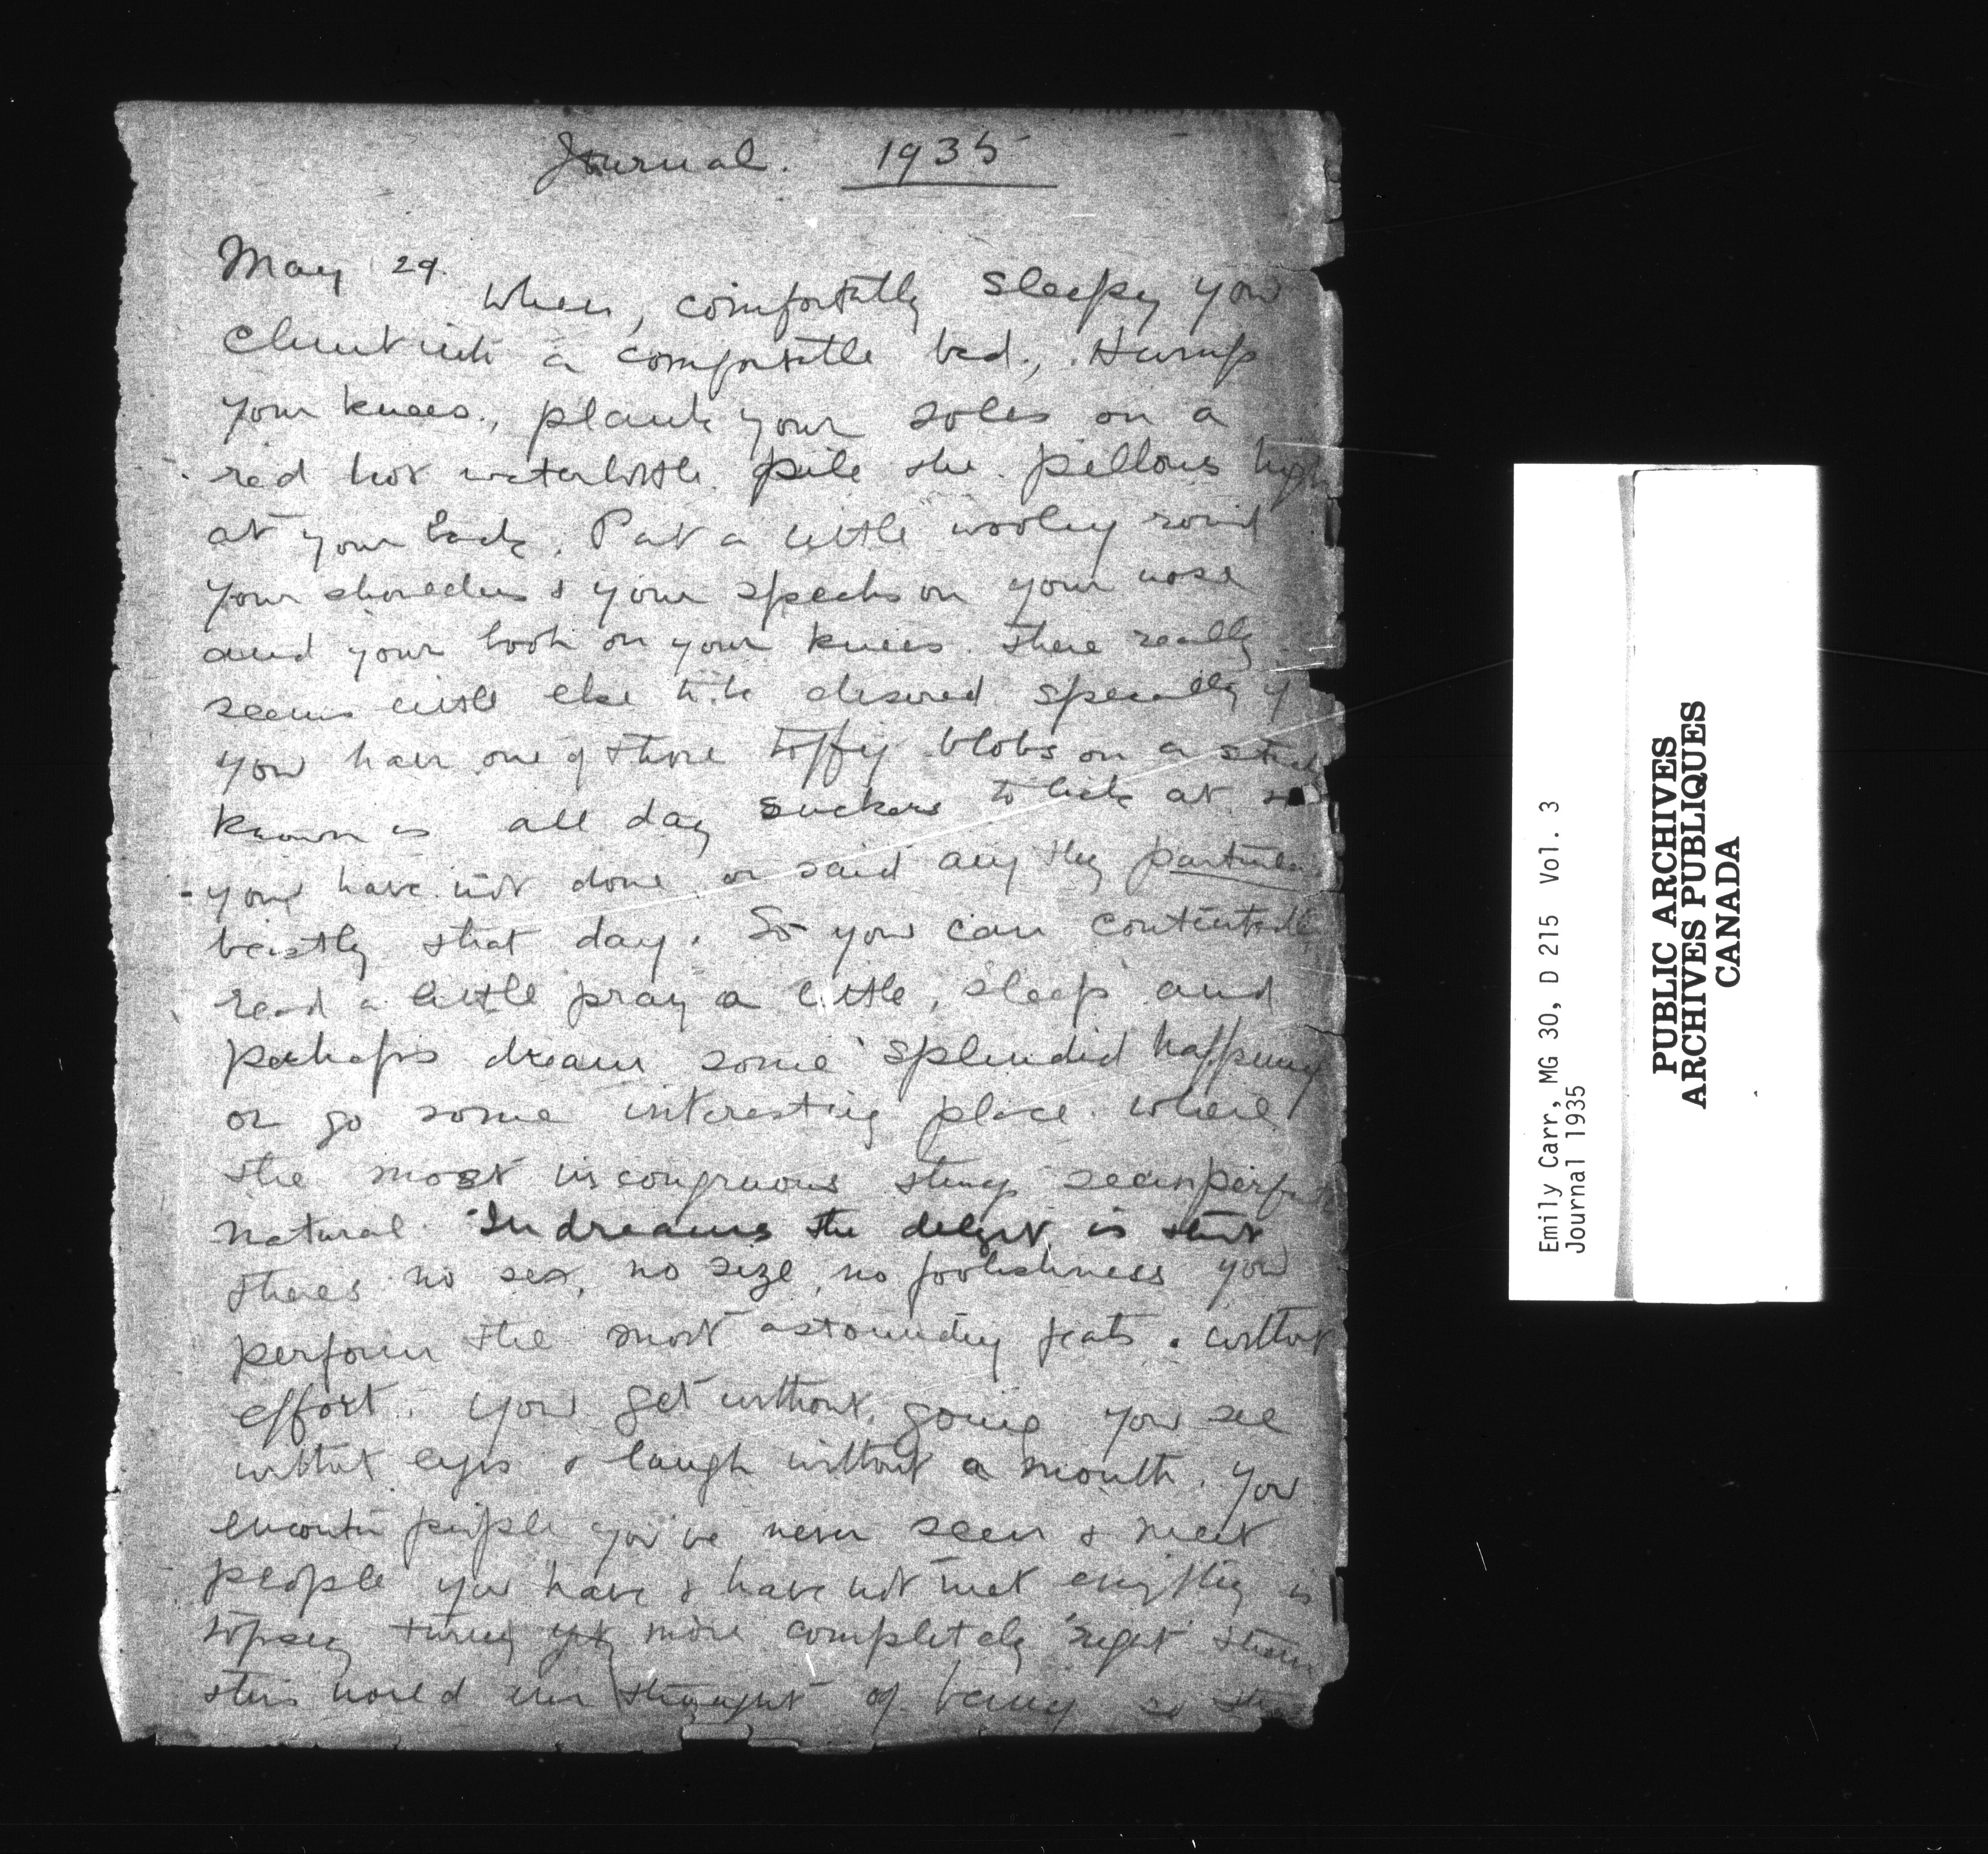 Journal. 1935
May 29.
When, comfortably sleepy you
climb into a comfortable bed, Hump
your knees, plant your soles on a
red hot waterbottle. pile the pillows high
at your back. Put a little wooley round
your shoulders & your specks on your nose
and your book on your knees. there really
seems little else to be desired specially if
you have one of those toffy blobs on a stick
known as all day suckers to lick at
you have not done or said any thing particular
beastly that day. So you can contentedly
read a little pray a little, sleep and
perhaps dream some splendid happening
or go some interesting place where
the most incongruous things seem perfectly
natural. In dreams the delight is that
theres no sex, no size, no foolishness you
perform the most astounding feats without
effort. you get without going you see
without eyes & laugh without a mouth. You
encounter people you've never seen & meet
people you have & have not met everything is
topsey turvey yet more completely 'right' than
this world ever thought of being so
Emily Carr, MG 30, D 215 Vol. 3
Journal 1935
PUBLIC ARCHIVES
ARCHIVES PUBLIQUES
CANADA